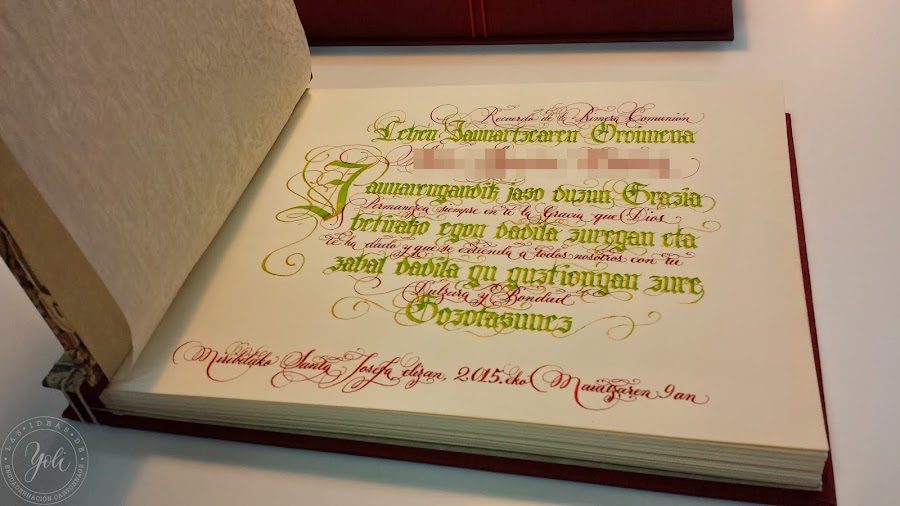 Recuerdo de la Primera Comunión
Lehen Jaunartzearen Oroimena
Jaunarengandik jaso duzun Grazia
Permanezca siempre en ti la Gracia que Dios
betirako egon dadila zuregan eta
te ha dado y que se extienda a todos nosotros con tu
zabal dadila gu guztiongan zure
Dulzura y Bondad
Gozotasunez
Miribillako Santa Josefa elizan, 2.015.eko Maiatzaren 9an
LAS·IDEAS·DE
Yoli
ENCUADERNACIÓN CARTONNAGE